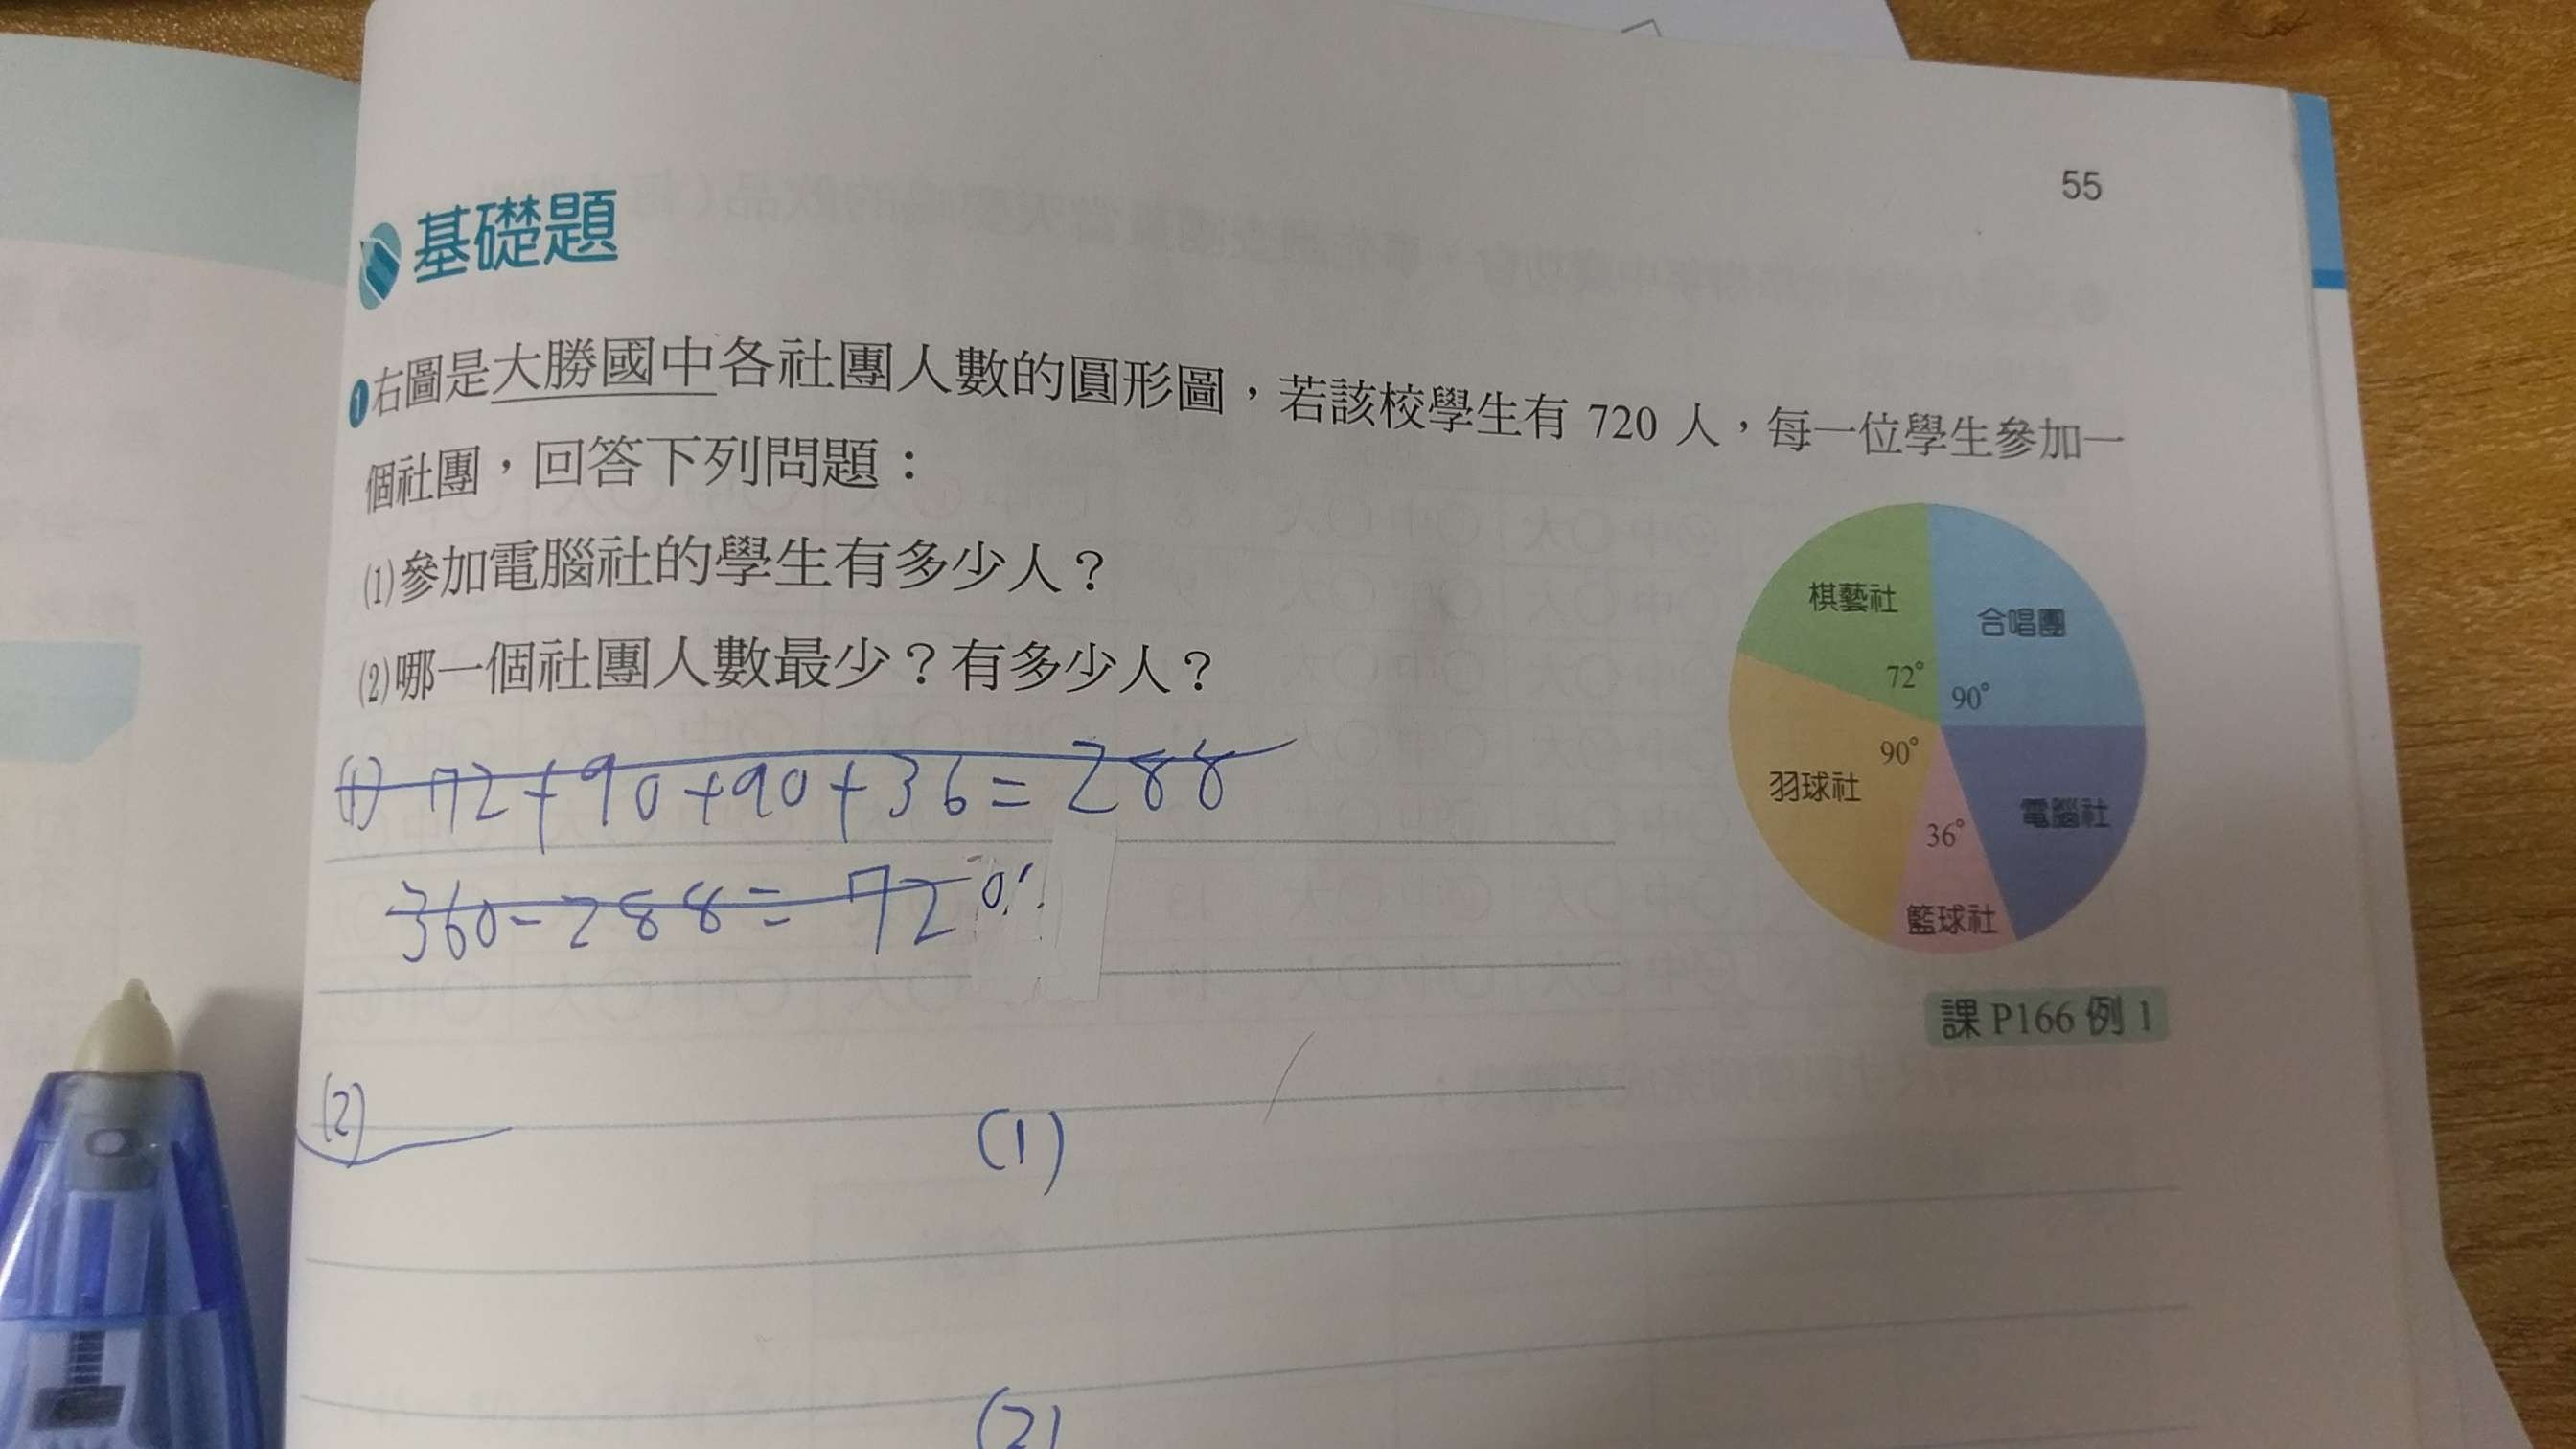 55
基礎題
1右圖是大勝國中各社團人數的圓形圖，若該校學生有 720 人，每一位學生參加一
個社團，回答下列問題：
(1)參加電腦社的學生有多少人？
(2)哪一個社團人數最少？有多少人？
棋藝社
合唱團
72°
90°
90°
羽球社
電腦社
36°
籃球社
課 P166 例 1
(1) 72+90+90+36=288
360-288=72
(2)
(1)
(2)